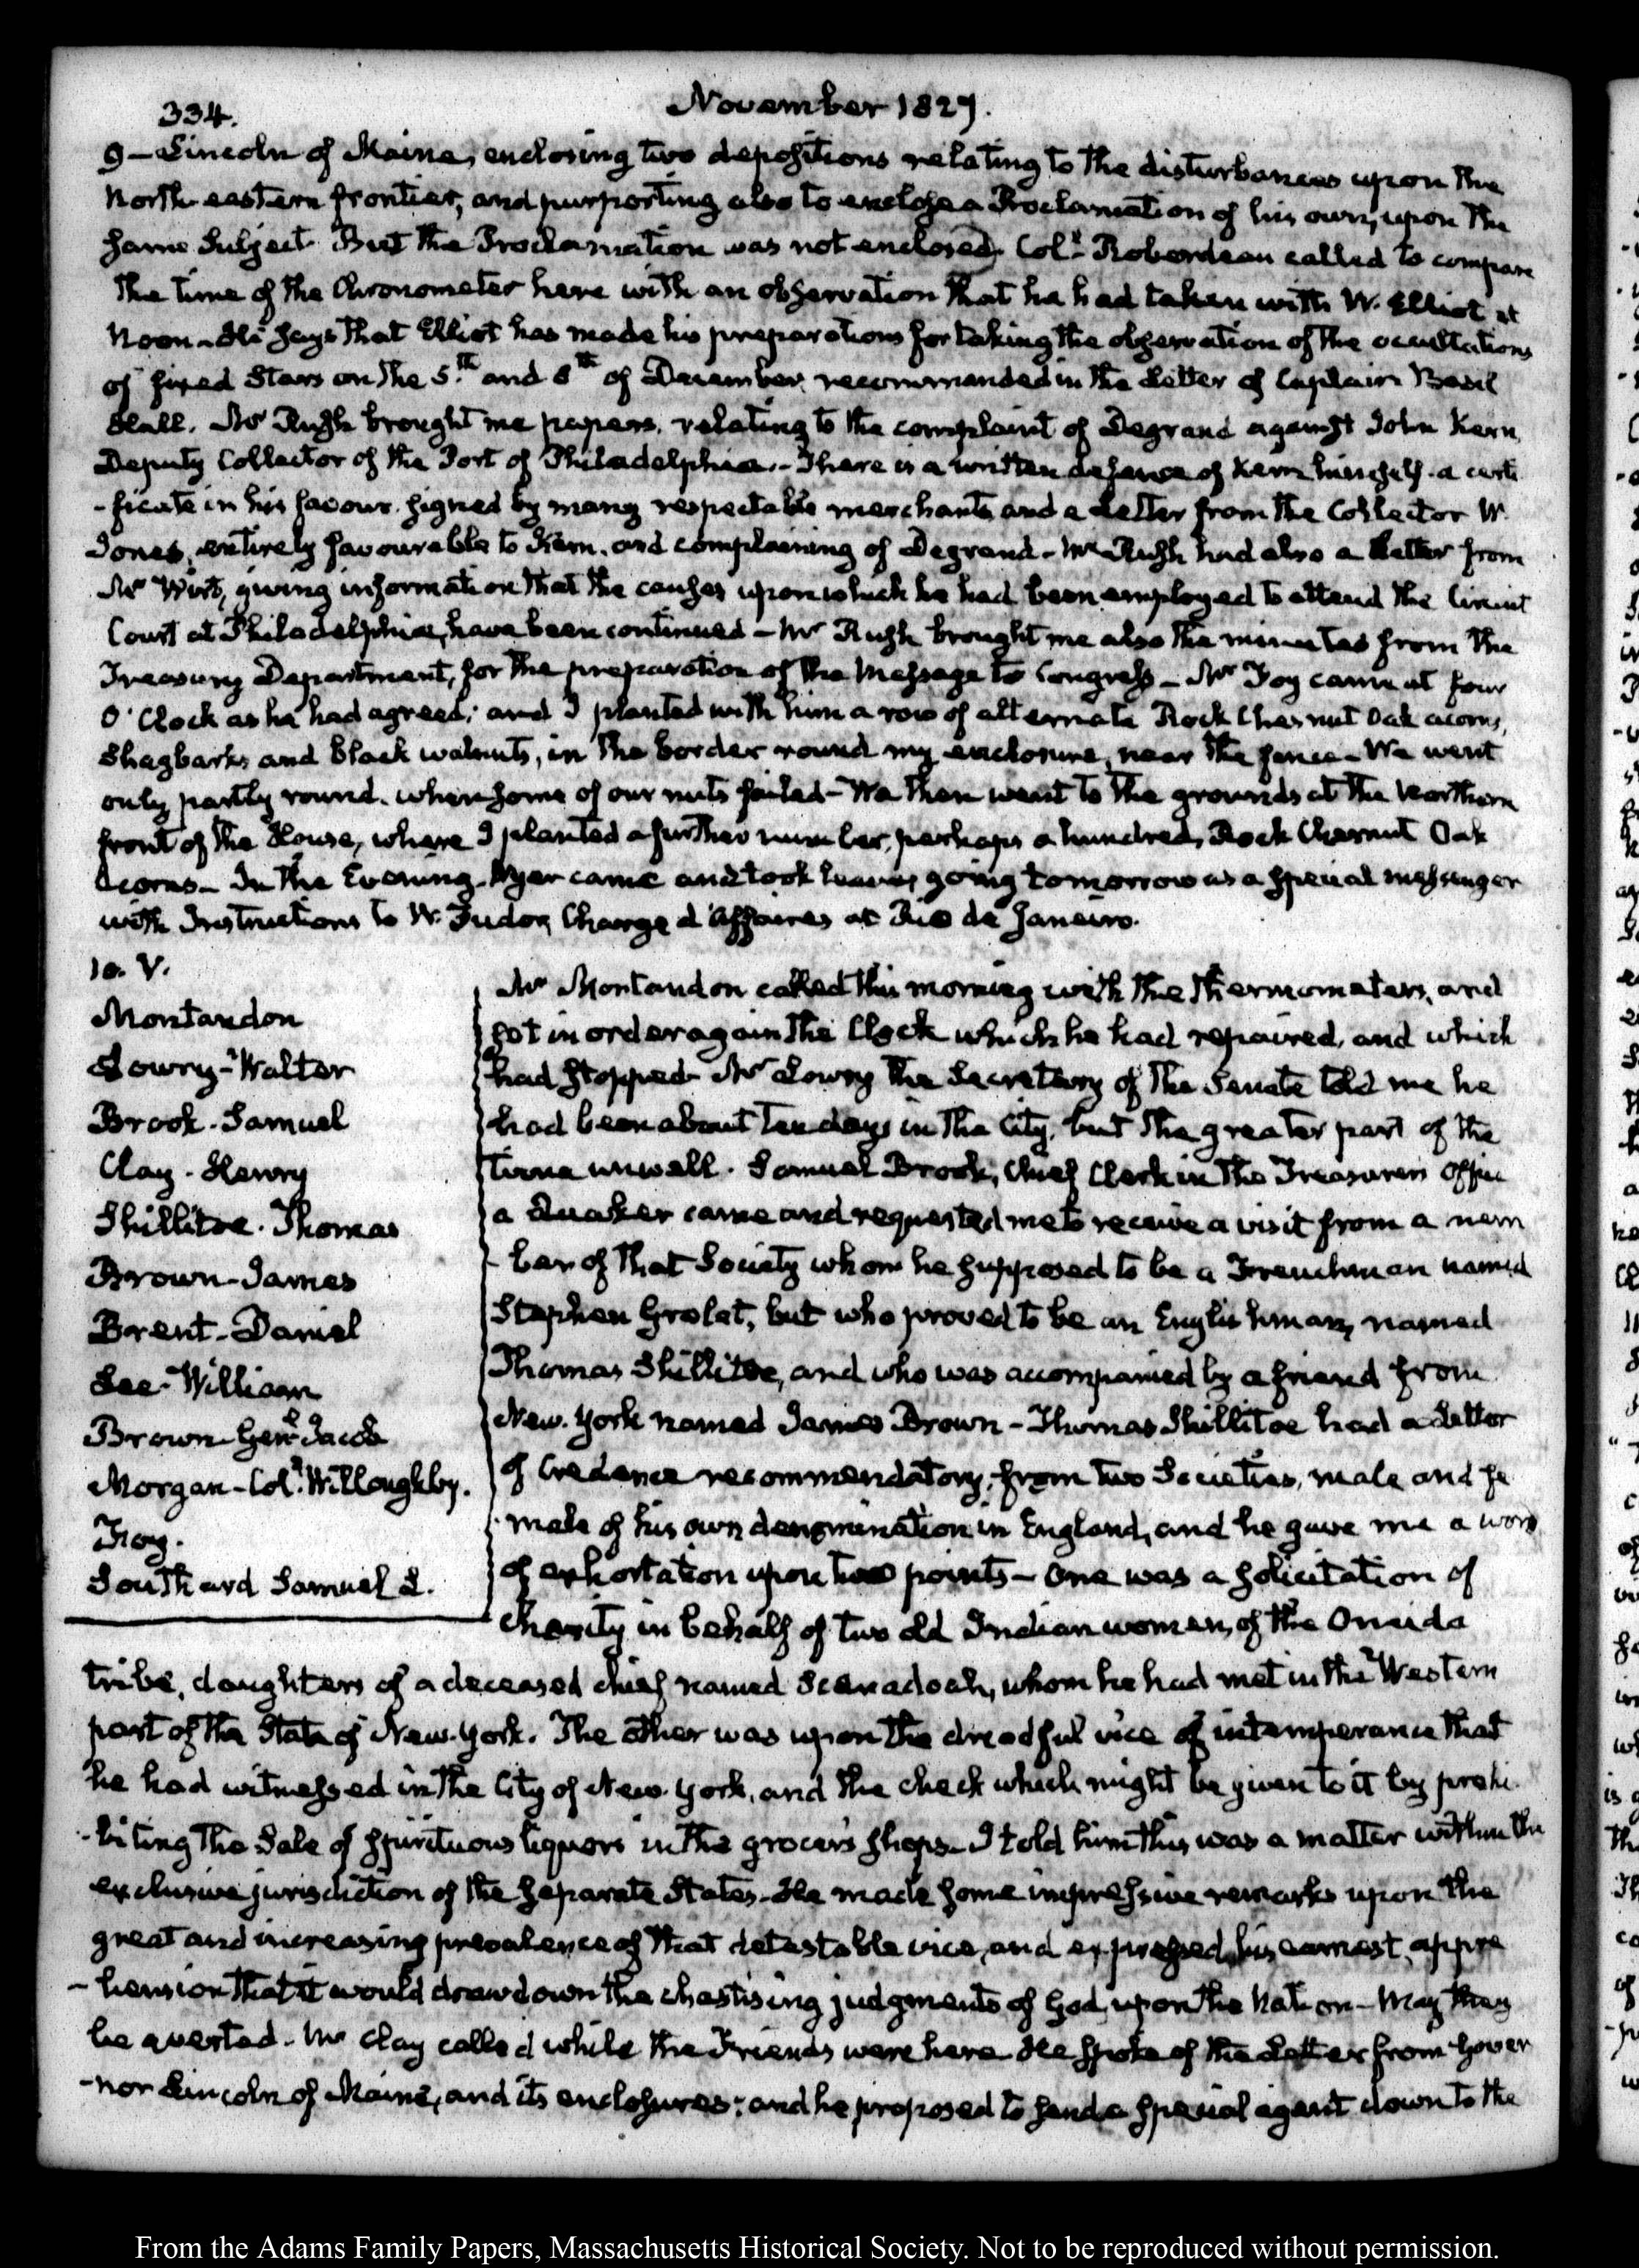 334.
November 1827.
9 – Lincoln of Maine, enclosing two depositions relating to the disturbances upon the
North-eastern frontier, and purporting also to enclose a Proclamation of his own, upon the
same Subject. But the Proclamation was not enclosed. Coll. Roberdeau called to compare
the time of the Chronometer here with an observation that he had taken with W. Elliot at
Noon. He says that Elliot has made his preparations for taking the observation of the occultations
of fixed Stars on the 5.th and 6th of December, recommended in the Letter of Captain Basil
Hall. Mr Rush brought me papers, relating to the complaint of Degrand against John Kern,
Deputy Collector of the Port of Philadelphia. – There is a written defence of Kern himself. a certi
-ficate in his favour signed by many respectable merchants, and a Letter from the Collector W.
Jones, entirely favourable to Kern, and complaining of Degrand – Mr Rush had also a Letter from
Mr Wirt, giving information that the causes upon which he had been employed to attend the Circuit
Court at Philadelphia, have been continued – Mr Rush brought me also the minutes from the
Treasury Department, for the preparation of the Message to Congress – Mr Foy came at four
O'Clock as he had agreed; and I planted with him a row of alternate Rock Chesnut Oak acorns,
Shagbarks and black walnuts, in the border round my enclosure, near the fence – We went
only partly round, when some of our nuts failed – We then went to the grounds at the Northern
front of the House, where I planted a further number, perhaps a hundred, Rock Chesnut Oak
Acorns – In the Evening came and took leave, going tomorrow as a special messenger
with Instructions to W. Tudor, Chargé d'Affaires at Rio de Janeiro.
10. V.
Montandon
Lowry - Walter
Brook - Samuel
Clay - Henry
Shillitoe. Thomas
Brown - James
Brent - Daniel
Lee - William
Brown Genl Jacob
Morgan - Coll. Willoughby.
Foy.
Southard Samuel L.
Mr Montandon called this morning with the thermometers, and
set in order again the Clock which he had repaired, and which
had stopped. Mr Lowry the Secretary of the Senate told me he
had been about ten days in the City, but the greater part of the
time unwell. Samuel Brook, Chief Clerk in the Treasurers Office
a Quaker came and requested me to receive a visit from a mem
-ber of that Society whom he supposed to be a Frenchman named
Stephen Grelet, but who proved to be an Englishman, named
Thomas Shillitoe, and who was accompanied by a friend from
New-York named James Brown – Thomas Shillitoe had a Letter
of Credence recommendatory, from two Societies, male and fe
-male of his own denomination in England, and he gave me a word
of exhortation upon two points – One was a solicitation of
charity in behalf of two old Indian women, of the Oneida
tribe, daughters of a deceased chief named Scanadoah, whom he had met in the Western
part of the State of New-York. The other was upon the dreadful vice of intemperance that
he had witnessed in the City of New-York, and the check which might be given to it by prohi
-biting the Sale of spirituous liquors in the grocer's shops – I told him this was a matter within the
exclusive jurisdiction of the separate States. He made some impressive remarks upon the
great and increasing prevalence of that detestable vice, and expressed his earnest appre
-hension that it would draw down the chastising judgments of God upon the Nation – May they
be averted. Mr Clay called while the Friends were here. He spoke of the Letter from Gover
-nor Lincoln of Maine, and its enclosures; and he proposed to send a special agent down to the
From the Adams Family Papers, Massachusetts Historical Society. Not to be reproduced without permission.